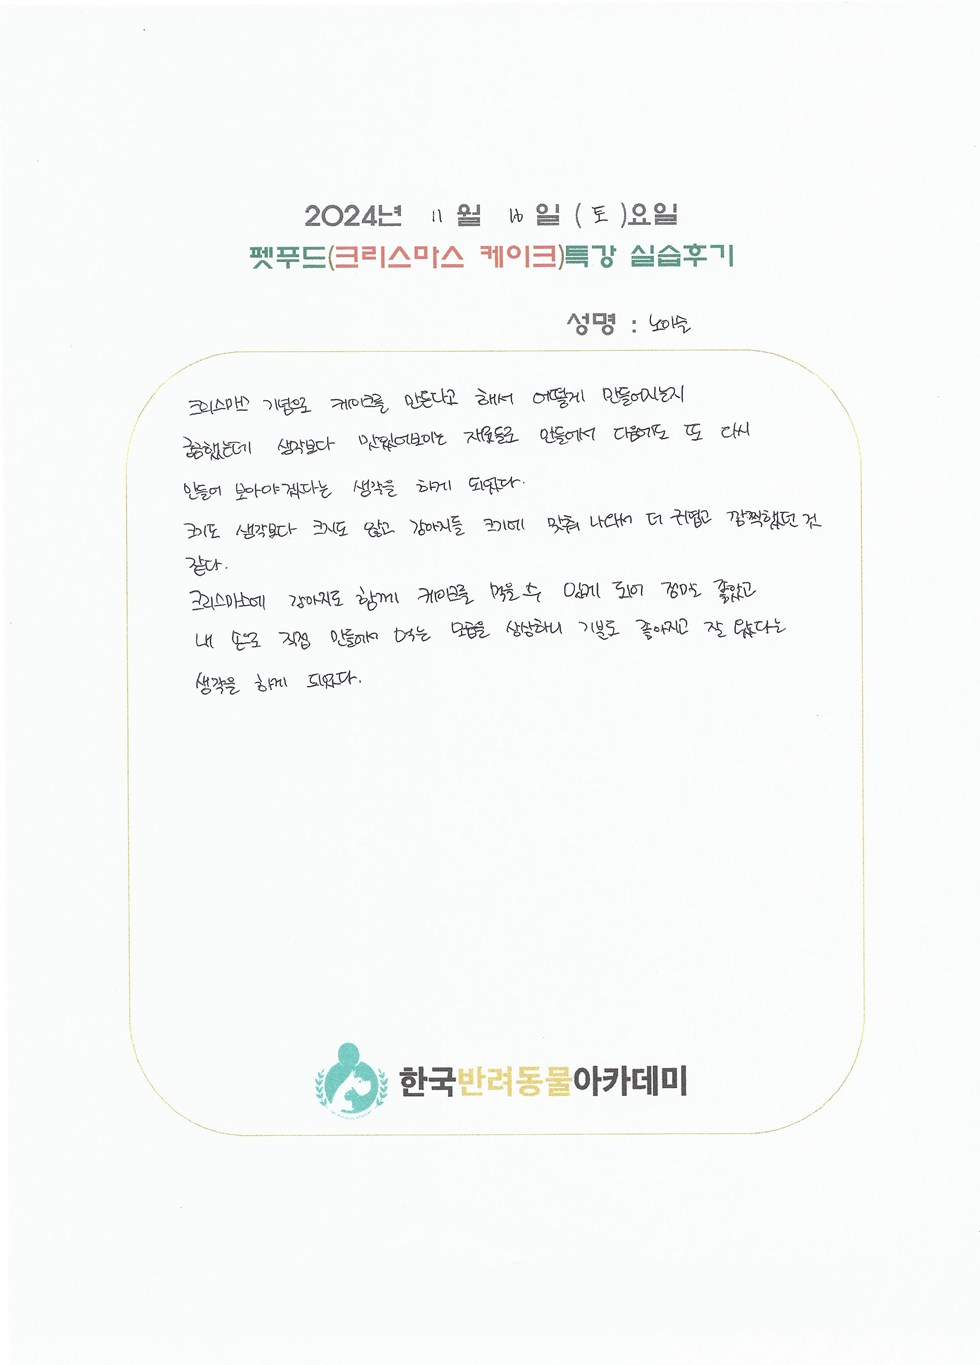 2024년 11월 16일 (토)요일
펫푸드(크리스마스 케이크)특강 실습후기
성명 : 노이슬
크리스마스 기념으로 케이크를 만든다고 해서 어떻게 만들어지는지
궁금했는데 생각보다 맛있어보이는 재료들로 만들어서 다음에도 또 다시
만들어 보아야겠다는 생각을 하게 되었다.
크기도 생각보다 크지도 않고 강아지들 크기에 맞춰 나와서 더 귀엽고 깜찍했던 것
같다.
크리스마스에 강아지도 함께 케이크를 먹을 수 있게 되어 정말로 좋았고
내 손으로 직접 만들어서 먹는 모습을 상상하니 기분도 좋아지고 잘 왔다는
생각을 하게 되었다.
한국반려동물아카데미